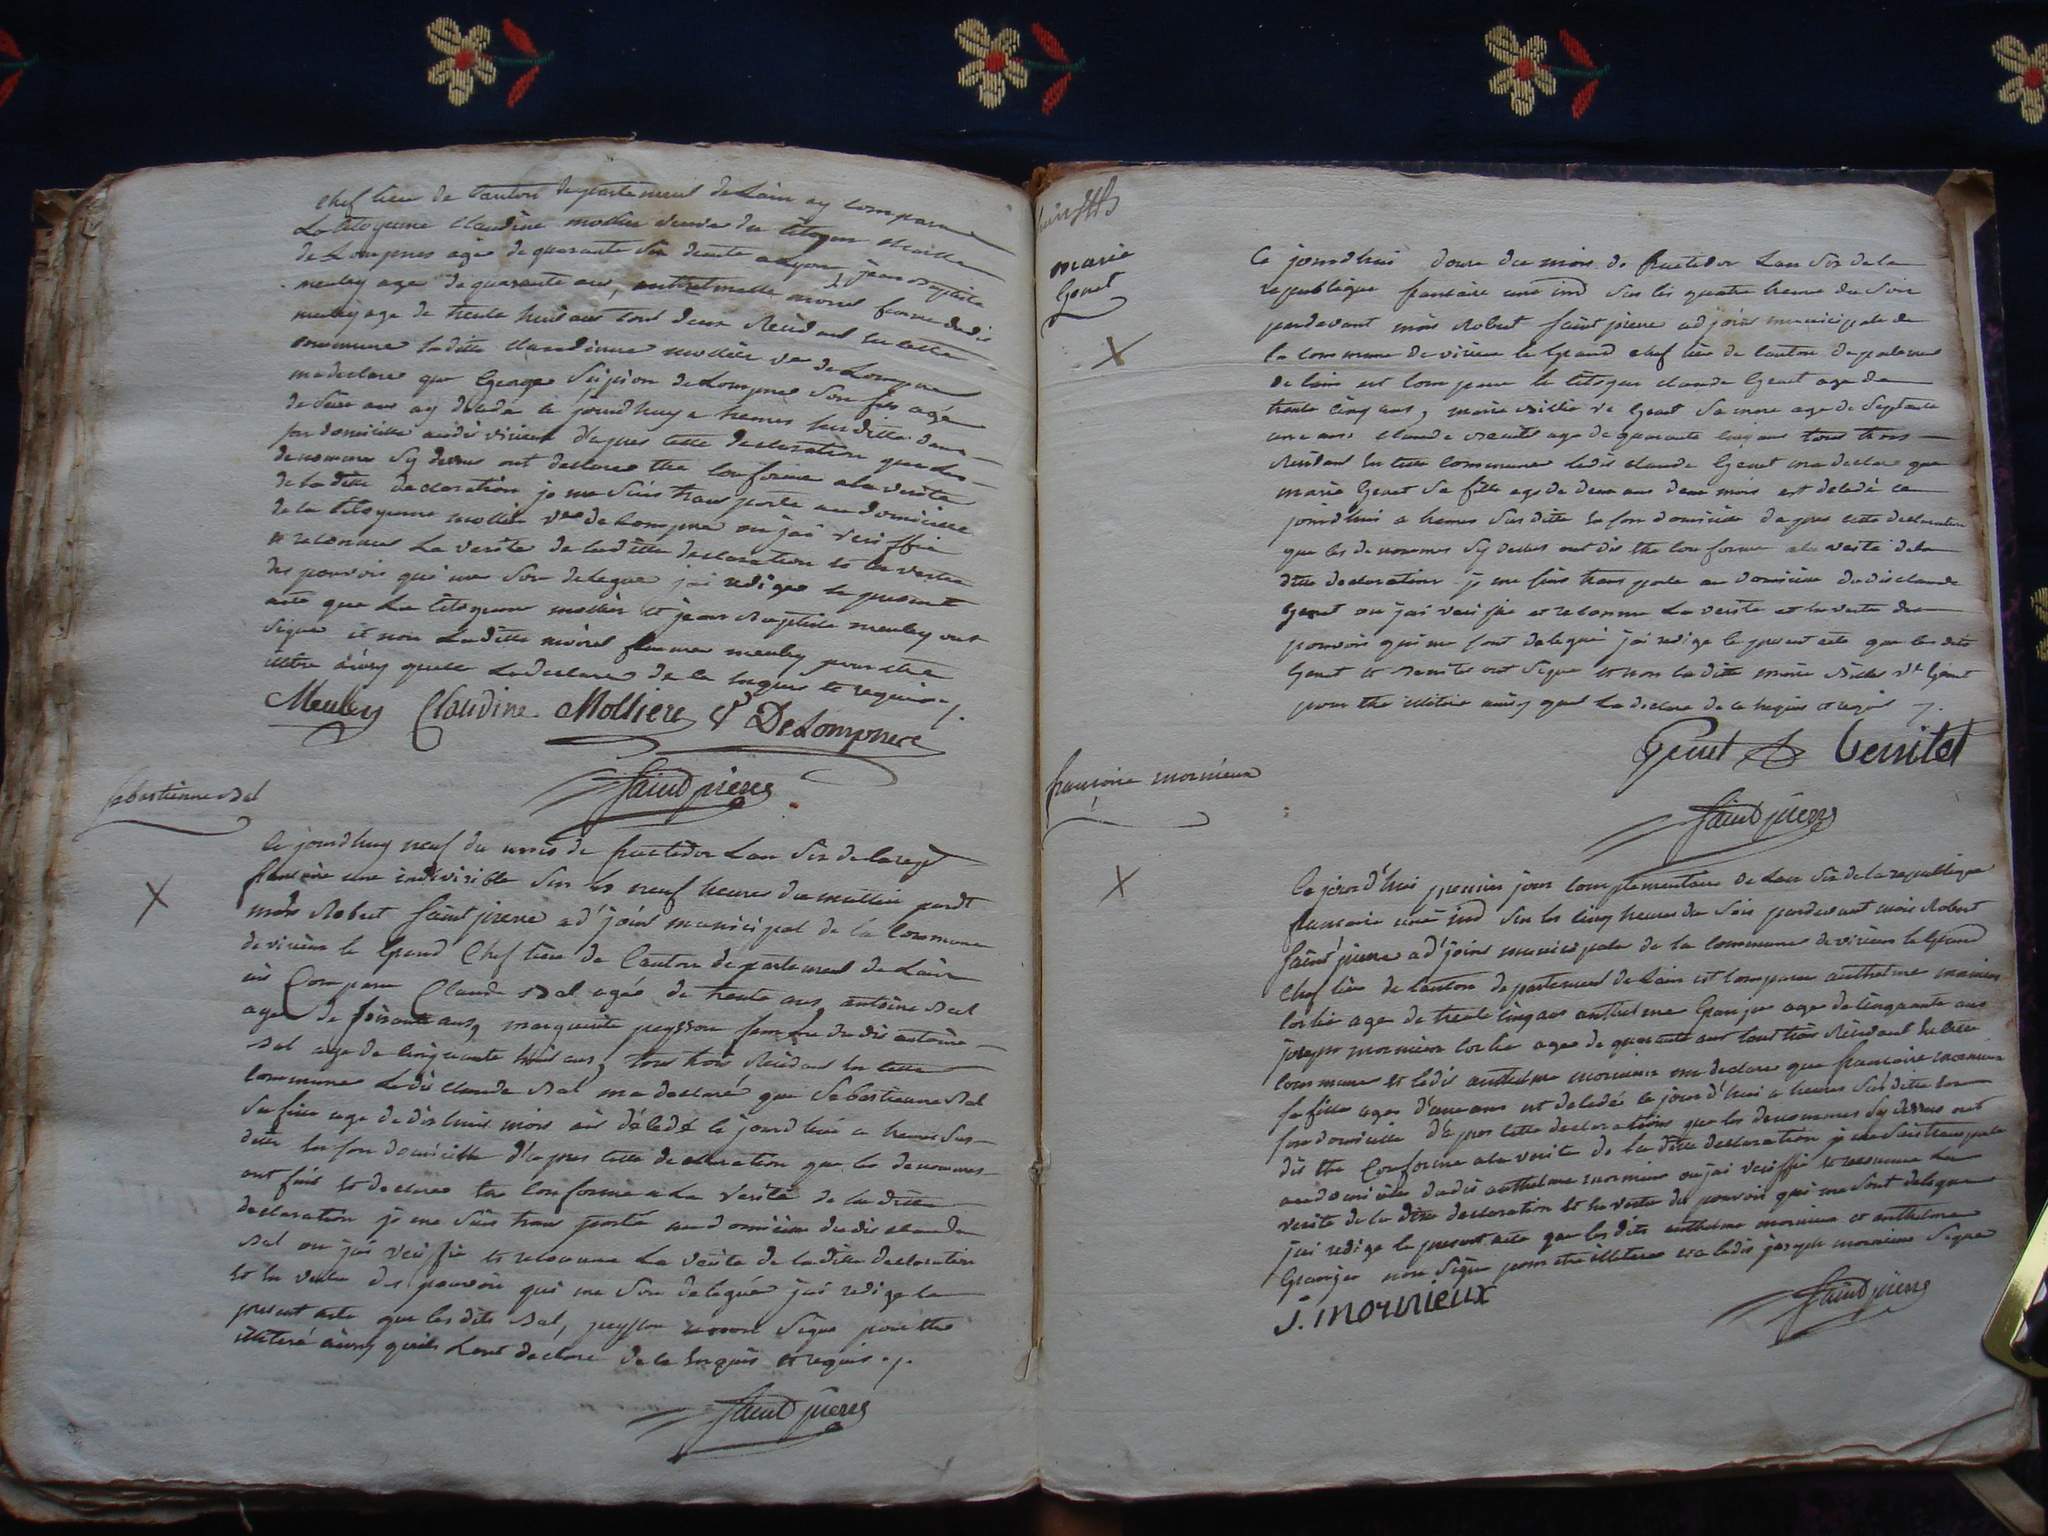 chef lieu de Canton departement de Lain ay comparu
La Citoyenne Claudine mollier veuve du Citoyen
de Lompnes agé de quarante six jean Baptiste
meuley age de quarante ans, anthelmette morel femme dudit
meuley age de trente huit ans tout deux Residant en cette
commune laditte Claudinne mollier ve de Lompne
ma declare que George Scipion de Lompnes son fils agé
de ans ay décédé ce jourdhuy a heures susditte dans
son domicille audit virieu d'apres cette declaration que les
denommes sy dessus ont declare etre conforme a la verité
de la ditte declaration je me suis transporte au domicille
de la Citoyenne mollier ve de Lompne ou jai veriffié
et reconnue La verité de laditte declaration et en vertu
des pouvoir qui me son delegue jai redigee le present
acte que La Citoyenne mollier et jean Baptiste meuley ont
signe et non Laditte morel femme meuley pour etre
illitre ainsy quelle La declaree de ce enquis et requise ./.
Meuley Claudine Molliere ve DeLompnere
Saint pierre
Sebastienne Bal
Ce jourdhuy neuf du mois de fructidor Lan six de la rep
francoise une indivisible sur les neuf heures du mattin pardt
mois Robert Saint pierre ad'joint municipal de la Commune
de virieu le Grand Chef lieu de Canton departement de Lain
Compru Claude Bal agée de trente ans, antoine Bal
agee de soisante ans, marguerite peysson femme dudit antoine
Bal age de cinquante huit ans, tous trois Residant en cette
Commune Ledit claude Bal ma declaré que Sebastienne Bal
sa fille age de dix huit mois décédé ce jourdhui a heures sus
ditte en son domicille d'apres cette declaration que les denommes
ont fait et declaree etre conforme a La verité de laditte
declaration je me suis trans porté au domicille dudit claude
Bal ou jai veriffie et reconnue La verité de laditte declaration
et en vertu des pouvoir qui me son deleguée jai redige le
present acte que lesdits Bal, peysson signe pour etre
illiteré ainsy quils Lont declare de ce enquis et requis ./.
Saint pierre
marie
Genet
Ce jourdhui douze du mois de fructidor Lan six de la
republique francaise une ind sur les quatre heure du soir
pardevant mois Robert Saint pierre adjoint municipale de
la commune de virieu le Grand chef lieu de Canton departement
de Lain est comparue le Citoyen claude Genet age de
trente cinq ans, marie ve Genet sa mere age de septante
ans claude age de quarante cinq ans tous trois
Residant en cette commune ledit claude Genet ma declare que
marie Genet sa fille age de deux ans deux mois est décédé ce
jourdhui a heures susditte en son domicile dapres cette declaration
que les denommes sy dessus ont dit etre conforme a la verité de la
ditte declaration je me suis transporte au domicille dudit claude
Genet ou jai veriffie et reconnue La verite et en vertu des
pouvoir qui me sont delegue jai redige le present acte que les dits
Genet et ont signe et non la ditte marie ve Genet
pour etre illitere ainsy quel La declare de ce enquis et requis ./.
Genet
Saint pierre
francoise mornieux
Ce jourd'hui premier jour complementaire de Lan six de la republique
francaise une ind sur les cinq heures du soir pardevant mois Robert
Saint pierre ad'joint municipale de la commune de virieu le Grand
Chef lieu de Canton departement de Lain est comparue anthelme mornieux
age de trente cinq ans anthelme Granjer age de cinquante ans
joseph mornieux age de quarante ans tous trois Residant en cette
commune et ledit anthelme mornieux ma declare que francoise mornieux
sa fille agee d'une ans est décédé ce jourd'hui a heures susditte en
son domicille d'apres cette declaration que les denommes sy dessus ont
dit etre Conforme a la verité de la ditte declaration je me suis transporte
au domicille dudit anthelme mornieux ou jai veriffié et reconnue La
verité de la ditte declaration et en vertu du pouvoir qui me sont delegue
jai redige le present acte que lesdits anthelme mornieux et anthelme
Granjer non signe pour etre illitere et a ledit joseph mornieux signe
J. mornieux
Saint pierre